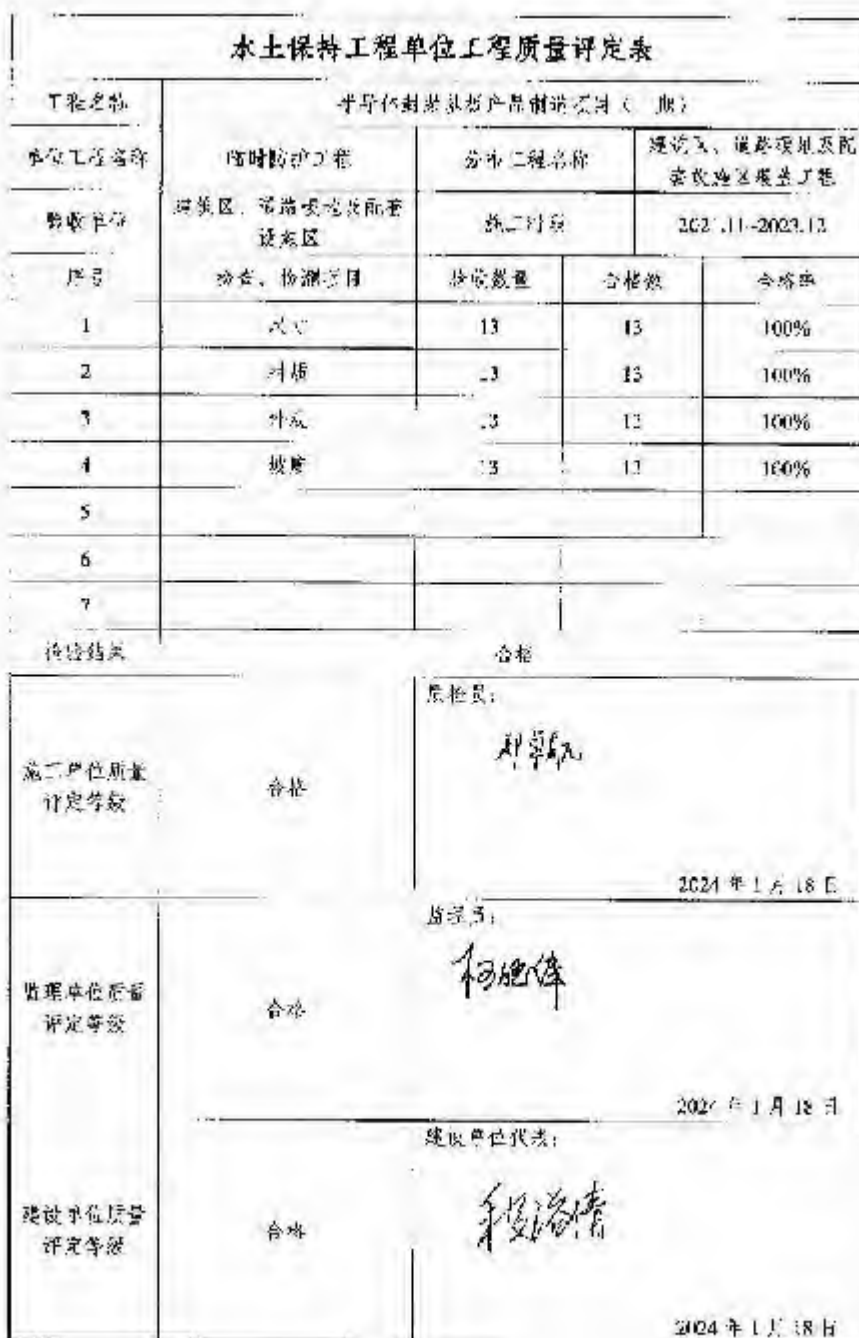 水土保持工程单位工程质量评定表
工程名称 半导体封装基板产品制造项目（ 期）
单位工程名称 临时防护工程 分部工程名称 建筑区、道路硬地及配
套设施区覆盖工程
验收单位 建筑区、道路硬地及配套
设施区 施工时段 2021.11-2023.12
序号 检查、检测项目 验收数量 合格数 合格率
1 尺寸 13 13 100%
2 材质 13 13 100%
3 外观 13 13 100%
4 坡度 13 13 100%
5
6
7
检验结果 合格
施工单位质量
评定等级 合格 质检员：
2024 年 1 月 18 日
监理单位质量
评定等级 合格 监理员：
2024 年 1 月 18 日
建设单位质量
评定等级 合格 建设单位代表：
2024 年 1 月 18 日